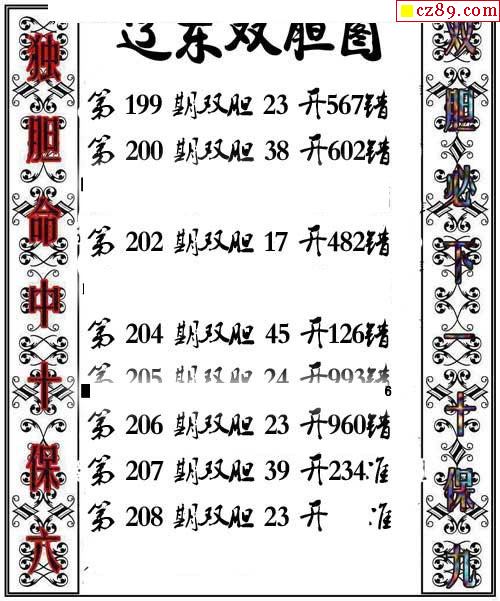 cz89.com
辽东双胆图
独胆命中十保六
第 199 期双胆 23 开567错
第 200 期双胆 38 开602错
第 202 期双胆 17 开482错
第 204 期双胆 45 开126错
第 205 期双胆 24 开993错
6
第 206 期双胆 23 开960错
第 207 期双胆 39 开234准
第 208 期双胆 23 开 准
双胆必下一十保九